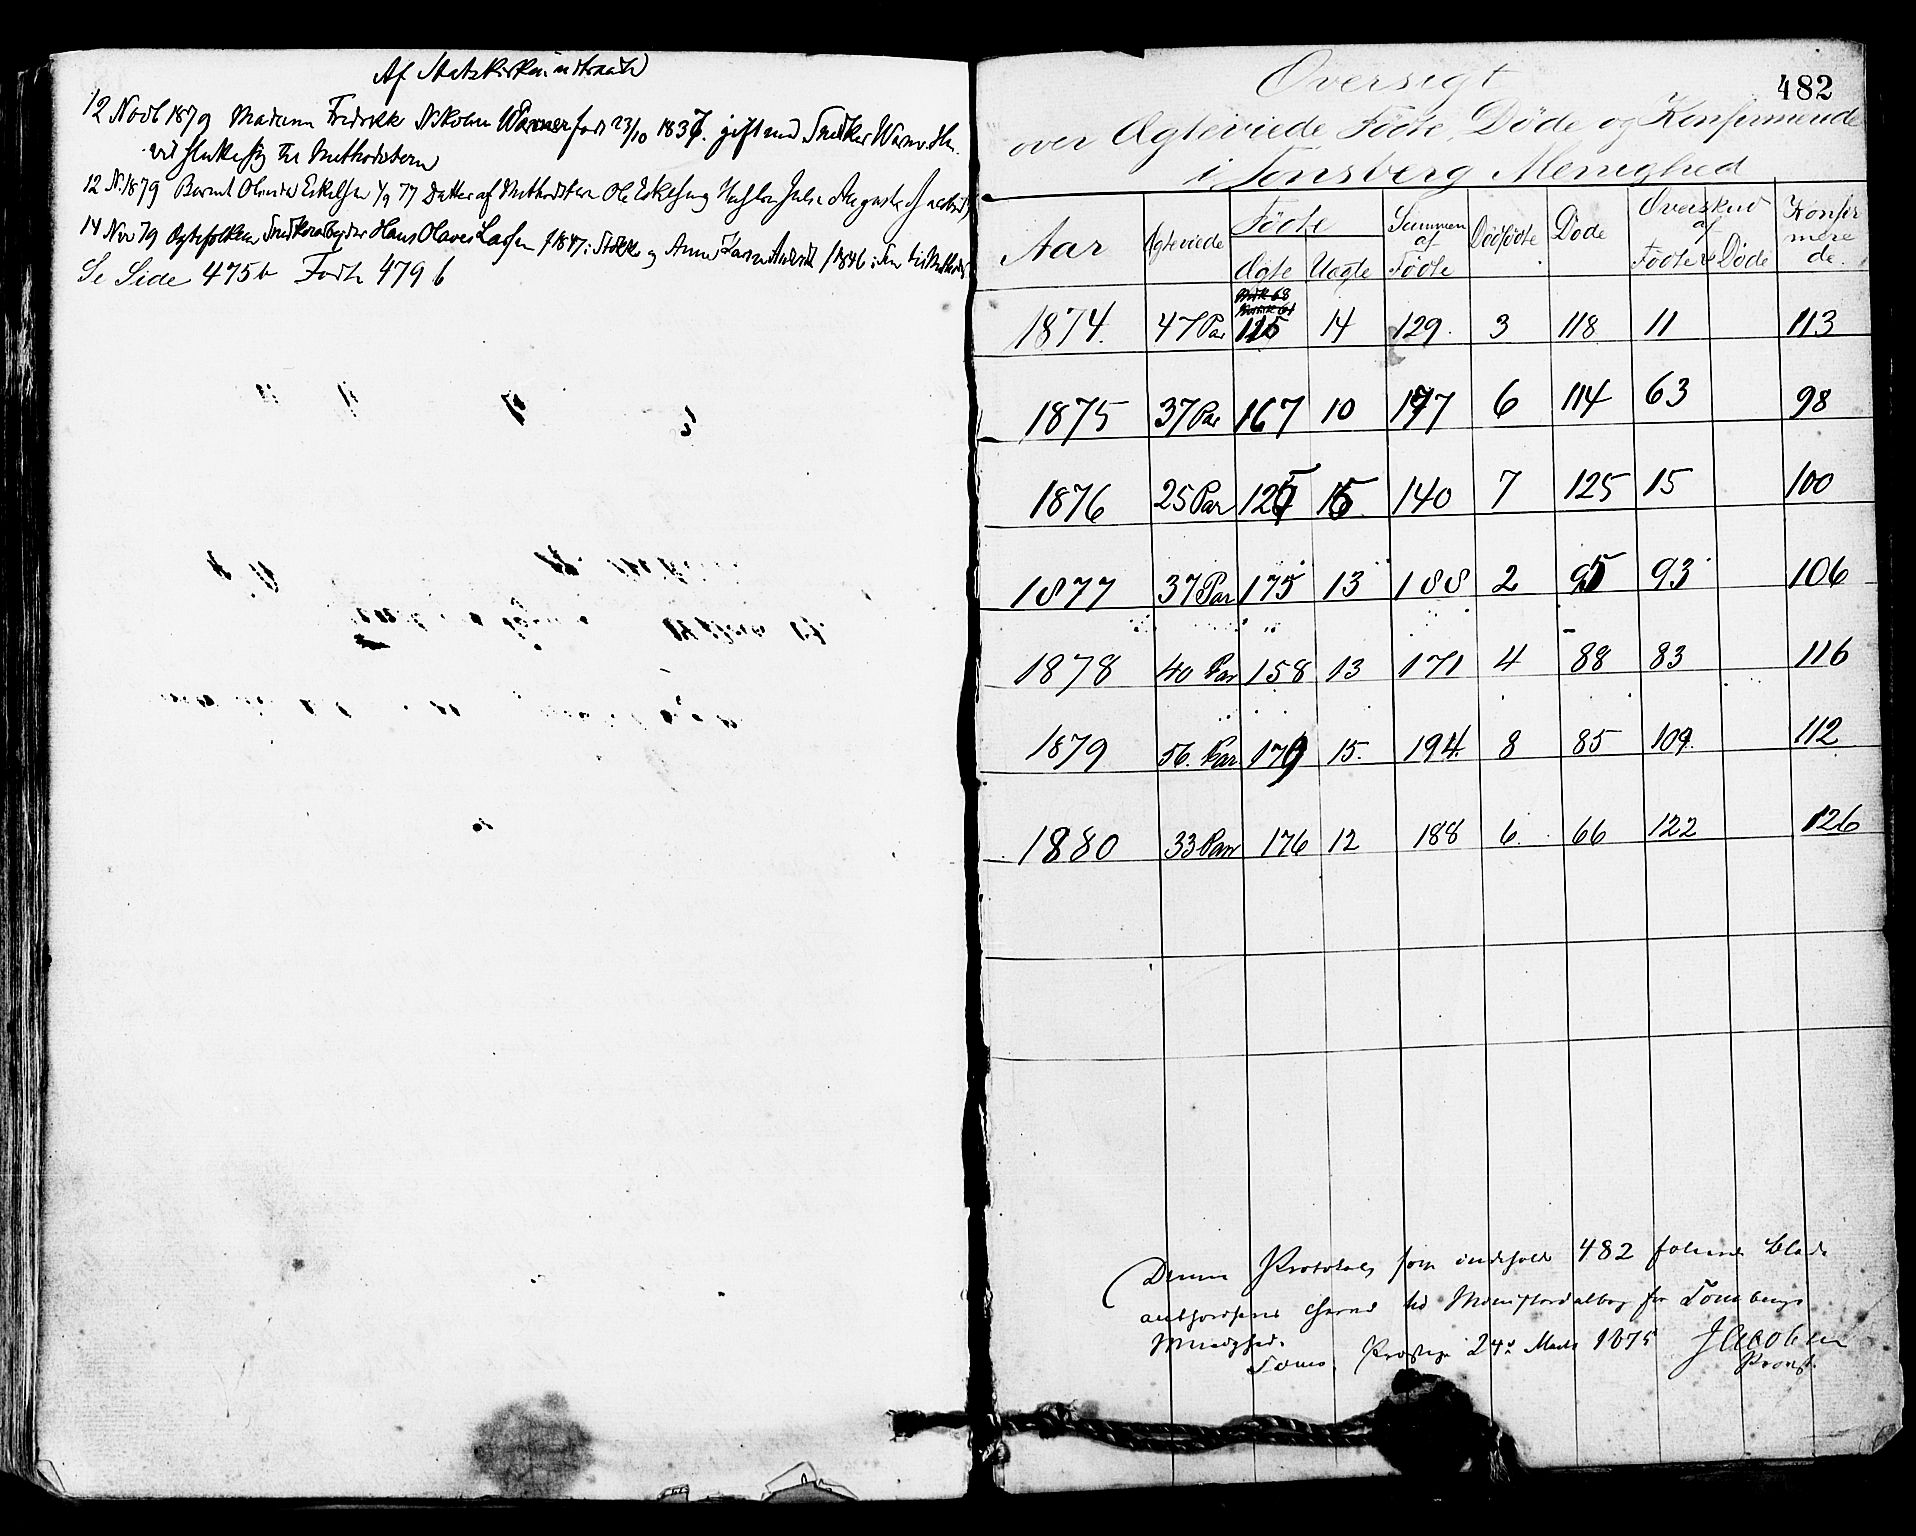 Af Statskirken udtraadt
12 Novb 1879 Madam Fredrikke Nikoline Warmer født 23/10 1837. gift med Snedker
vil slutte sig til Methodisterne
12 N. 1879 Bernt Olender Eskelsen 1/9 77 Datter af Methodisten Ole Eskelsen og
14 Nov 79 Ægtefolkene Snedkerarbeider Hans Olaves Larsen f 1847 i Stokke og Anne f 1846 i
Se Side 475b Forts 479 b
482
Oversigt
over Ægteviede Födte, Döde og Konfirmerede
i Tönsberg Menighed
Aar Ægteviede Födte Ægte Uægte Summen af Födte Dödfödte Döde Overskud af Födte Döde Konfirmerede.
1874. 47 Par 115 14 129. 3 118 11 113
1875 37 Par 167 10 177 6 114 63 98
1876 25 Par 125 15 140 7 125 15 100
1877 37 Par 175 13 188 2 95 93 106
1878 40 Par 158 13 171 4 88 83 116
1879 56. Par 179 15. 194. 8 85 109. 112
1880 33 Par 176 12 188 6. 66 122 126
Denne Protokol, som indeholder 482 folierede Blade
authoriseres herved til Ministerialbog for Tönsbergs
Menighed.
Provsti 24de Marts 1875 Jacobsen
Provst.